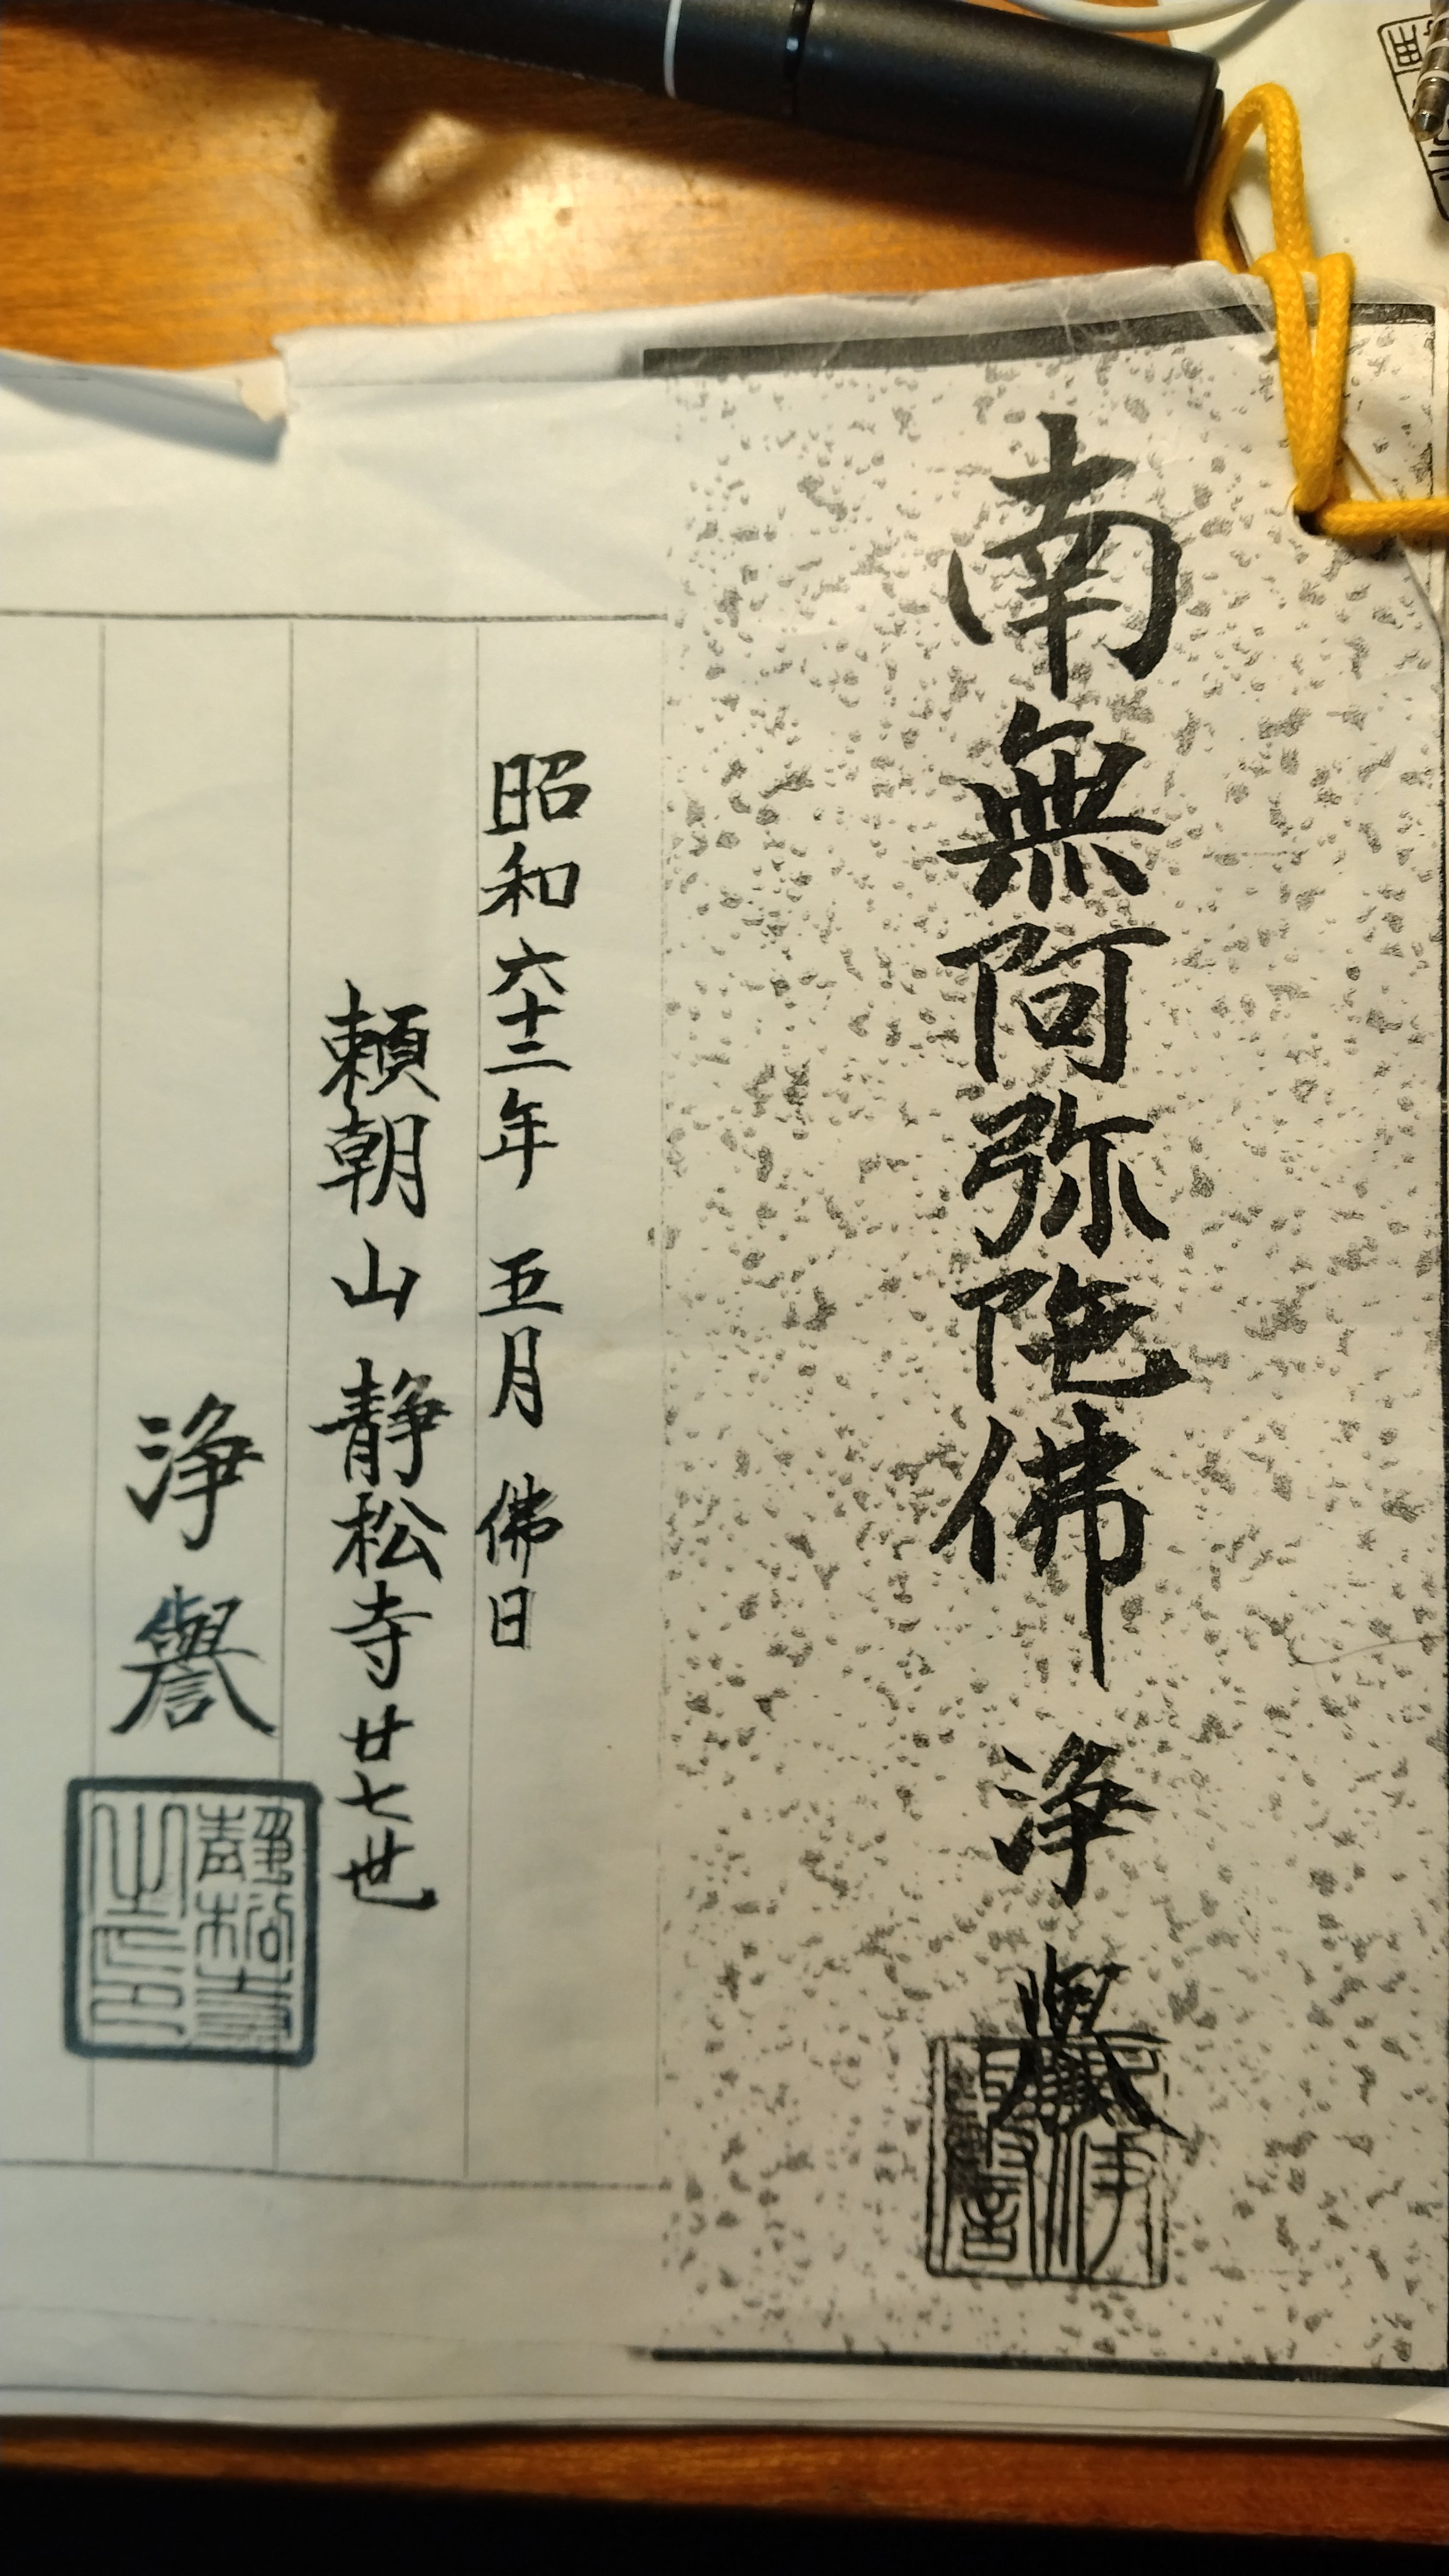 南無阿弥陀佛 浄譽
昭和六十二年 五月 佛日
頼朝山 静松寺 廿七世
浄譽
静松寺之印